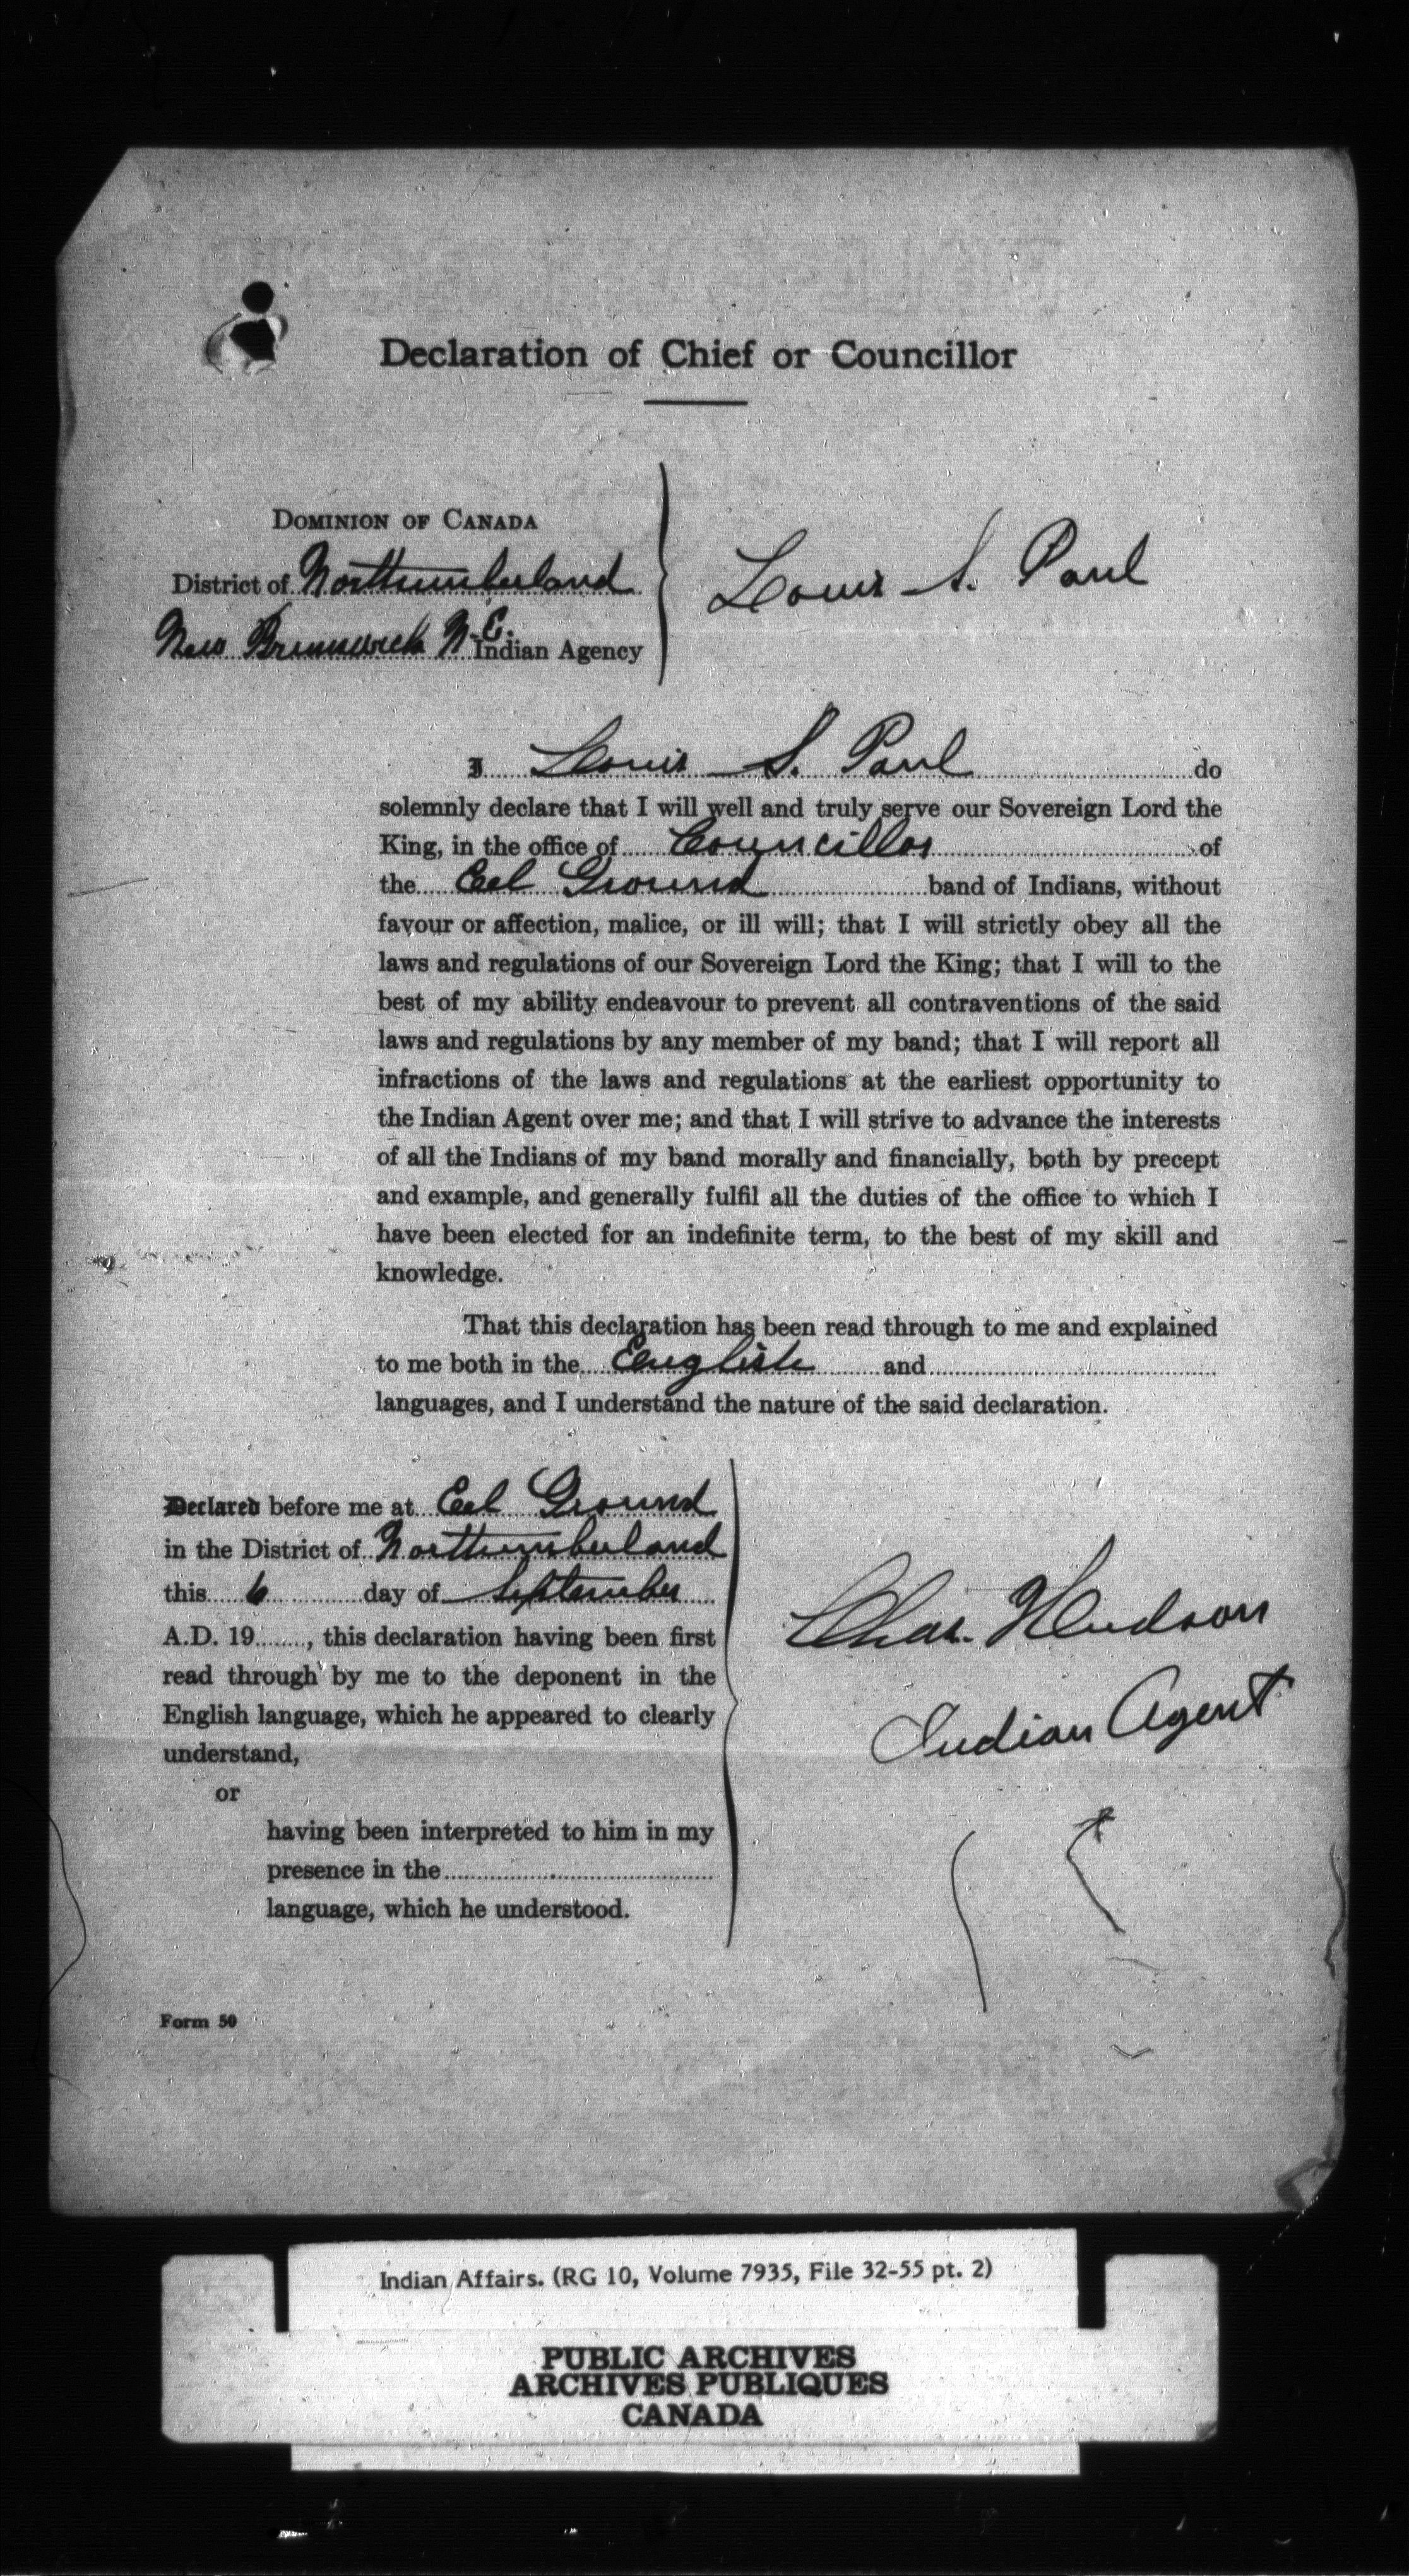 Declaration of Chief or Councillor
DOMINION OF CANADA
District of Northumberland
New Brunswick N.E. Indian Agency
Louis S. Paul
I Louis S. Paul do
solemnly declare that I will well and truly serve our Sovereign Lord the
King, in the office of Councillor of
the Eel Ground band of Indians, without
favour or affection, malice, or ill will; that I will strictly obey all the
laws and regulations of our Sovereign Lord the King; that I will to the
best of my ability endeavour to prevent all contraventions of the said
laws and regulations by any member of my band; that I will report all
infractions of the laws and regulations at the earliest opportunity to
the Indian Agent over me; and that I will strive to advance the interests
of all the Indians of my band morally and financially, both by precept
and example, and generally fulfil all the duties of the office to which I
have been elected for an indefinite term, to the best of my skill and
knowledge.
That this declaration has been read through to me and explained
to me both in the English and
languages, and I understand the nature of the said declaration.
Declared before me at Eel Ground
in the District of Northumberland
this 6 day of September
A.D. 19......, this declaration having been first
read through by me to the deponent in the
English language, which he appeared to clearly
understand,
or
having been interpreted to him in my
presence in the
language, which he understood.
Chas. Hudson
Indian Agent
Form 50
Indian Affairs. (RG 10, Volume 7935, File 32-55 pt. 2)
PUBLIC ARCHIVES
ARCHIVES PUBLIQUES
CANADA